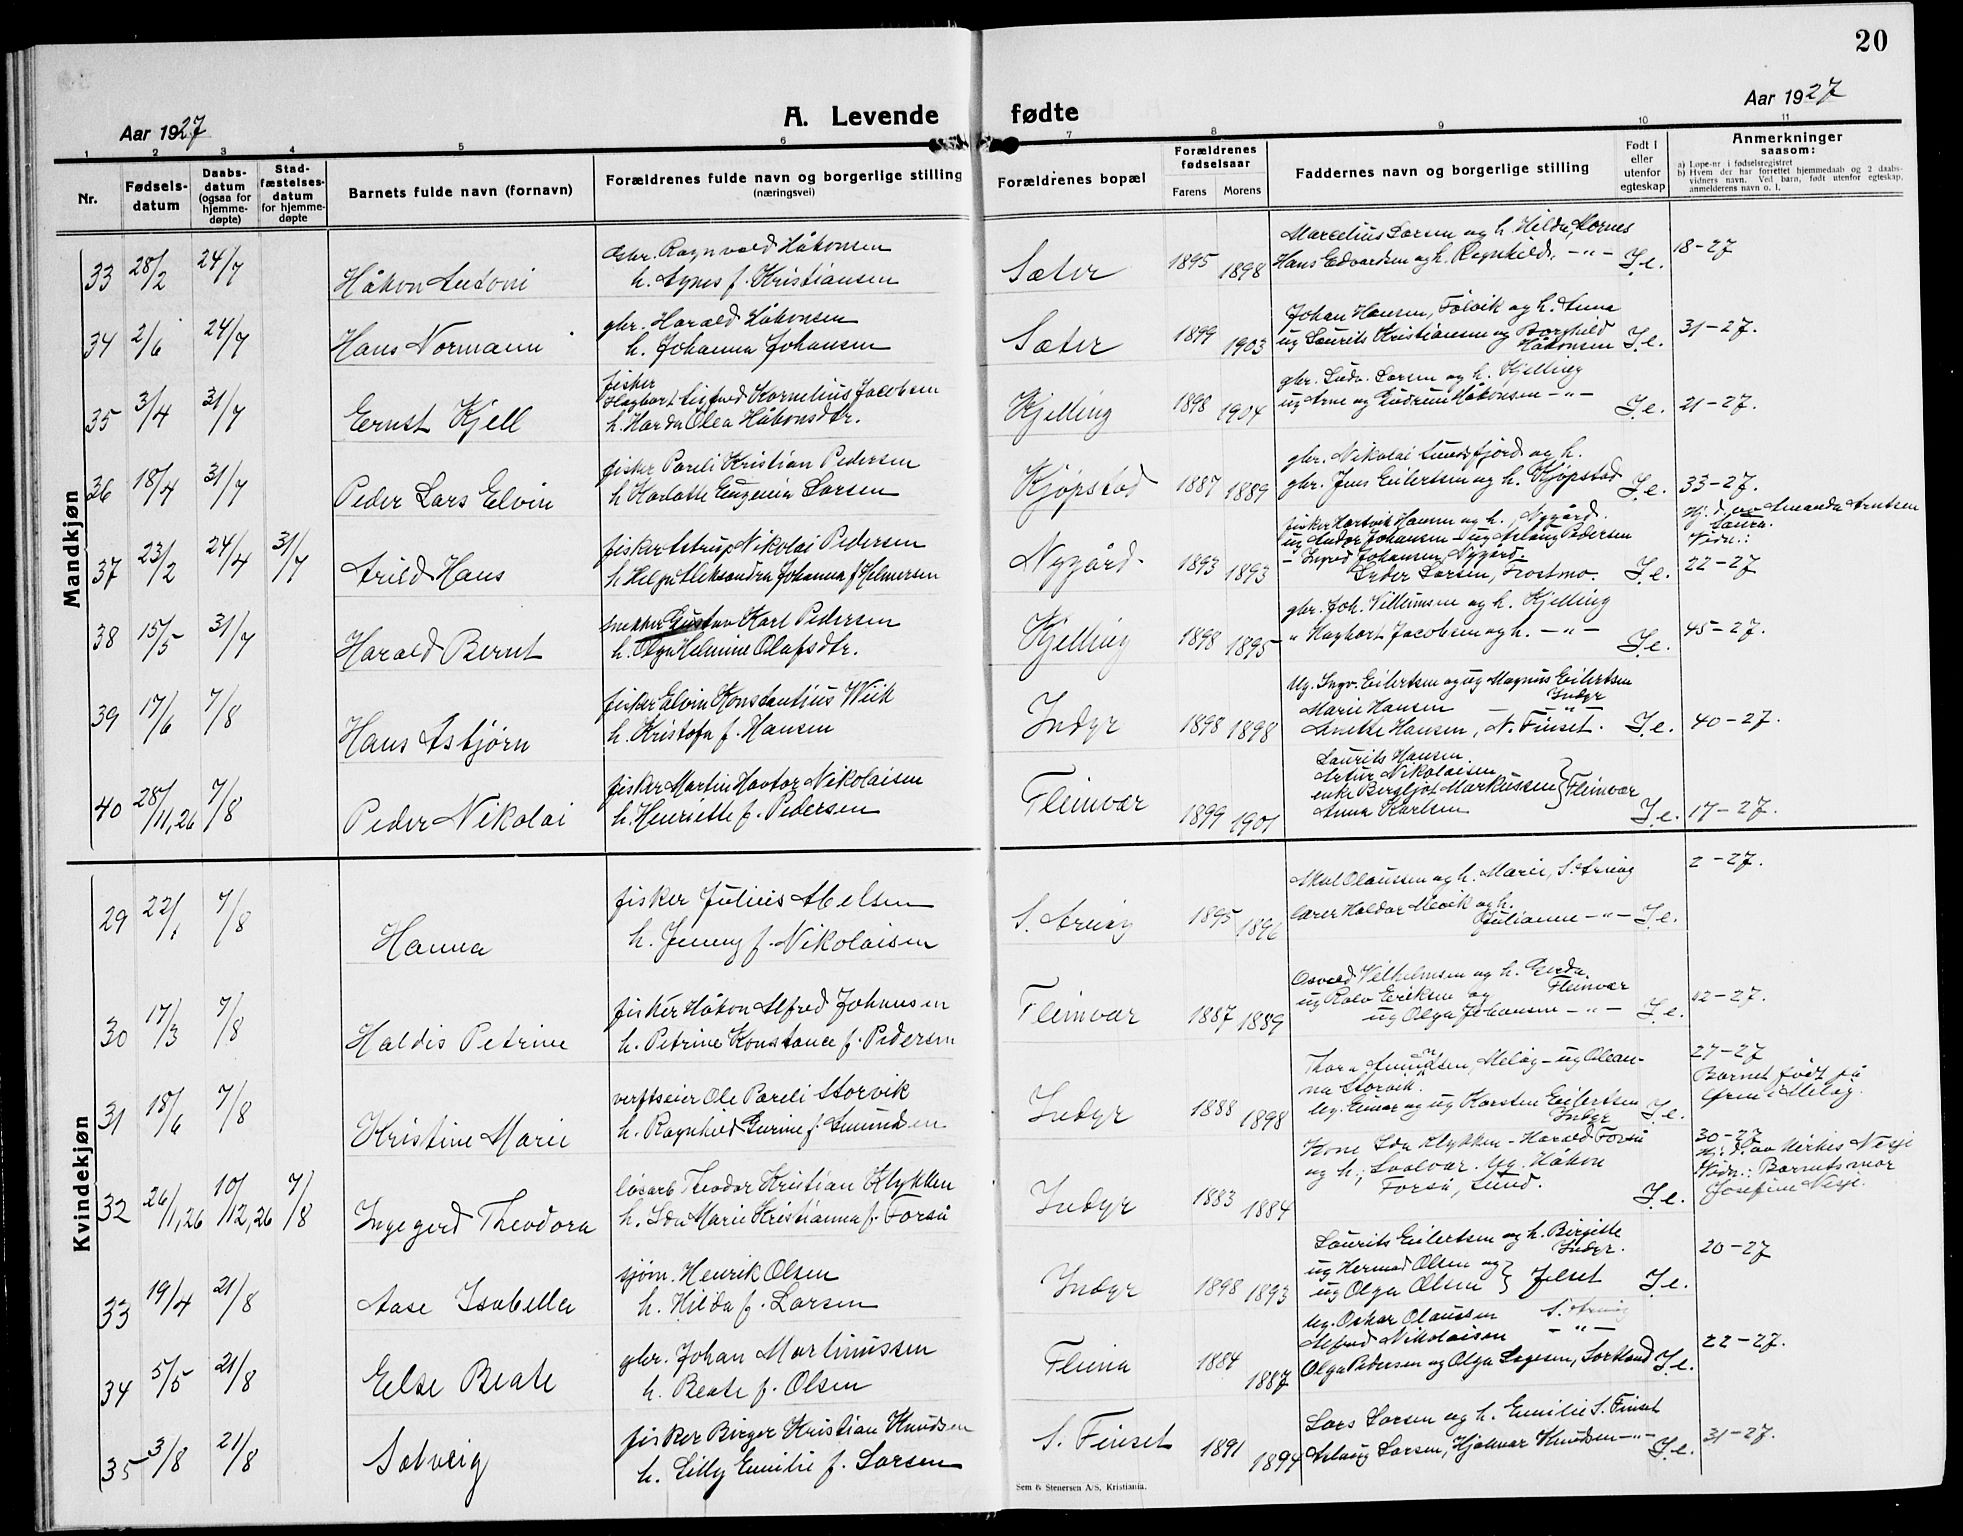 20
Aar 1927
A. Levende
fødte
Aar 1927
1 2 3 4 5 6 7 8 9 10 11
Nr.
Fødsels-
datum
Daabs-
datum
(ogsaa for
hjemme-
døpte)
Stad-
fæstelses-
datum
for hjemme-
døpte
Barnets fulde navn (fornavn)
Forældrenes fulde navn og borgerlige stilling
(næringsvei)
Forældrenes bopæl
Forældrenes
fødselsaar
Farens Morens
Faddernes navn og borgerlige stilling
Født i
eller
utenfor
egteskap
Anmerkninger
saasom:
a) Løpe-nr. i fødselsregistret
b) Hvem der har forrettet hjemmedaab og 2 daabs-
vidners navn. Ved barn, født utenfor egteskap,
anmelderens navn o. l.
Mandkjøn
33 28/2 24/7 Håkon Antoni
gbr. Ragnvald Håkonsen
h. Agnes f. Kristiansen
Sæter 1895 1898
Marcelius Larsen og h. Hilda, Mornes
Hans Edvardsen og h. Ragnhild, -"- I.e. 18-27
34 2/6 24/7 Hans Normann
gbr. Harald Håkonsen
h. Johanna Johansen
Sæter 1899 1903
Johan Hansen, Følvik og h. Anna
ug Laurits Kristiansen og Borghild
Håkonsen I.e. 31-27.
35 3/4 31/7 Ernst Kjell
fisker
Hagbart Sigfred Kornelius Jacobsen
h. Harda Olea Håkonsdtr.
Kjelling 1898 1904
gbr. Ludv. Larsen og h. Kjelling
ug Arne og Gudrun Håkonsen -"- I.e. 21-27.
36 18/4 31/7 Peder Lars Elvin
fisker Pareli Kristian Pedersen
h Karlotte Eugenia Larsen
Kjøpstad 1887 1889
gbr. Nikolai Sundsfjord og h.
gbr. Jens Eilertsen og h. Kjøpstad I.e. 33-27.
37 23/2 24/4 31/7 Arild Hans
fisker Astrup Nikolai Pedersen
h Helga Aleksandra Johanna f Helmersen
Nygård 1893 1893
fisker Hartvik Hansen og h., Nygård.
ug Andor Johansen - ug Aslaug Pedersen
- Ingrid Johansen, Nygård.
Peder Larsen, Frostmo. I.e.
Hj. d. av Amanda Arntsen
Saura.
Vidn.:
22-27
38 15/5 31/7 Harald Bernt
snekker Gustav Karl Pedersen
h. Olga Helmine Olafsdtr.
Kjelling 1898 1895
gbr. Joh. Villumsen og h. Kjelling
" Hagbart Jacobsen og h. -"- I.e. 45-27.
39 17/6 7/8 Hans Asbjørn
fisker Elvin Konstantius Wiik
h. Kristofa f. Hansen
Indyr 1898 1898
Ug. Ingv. Eilertsen og ug Magnus Eilertsen
Indyr
Marie Hansen -"-
Anette Hansen, N. Finset. I.e. 40-27.
40 28/11,26 7/8 Peder Nikolai
fisker Martin Havtor Nikolaisen
h. Henriette f. Pedersen
Fleinvær 1899 1901
Laurits Hansen
Artur Nikolaisen
enke Bergljot Markussen } Fleinvær
Anna Karlsen I.e. 17-27.
Kvindekjøn
29 22/1 7/8 Hanna
fisker Julius Abelsen
h. Jenny f. Nikolaisen
S. Arnøy 1895 1896
Abel Olaussen og h. Marie, S. Arnøy
lærer Haldor Mevik og h.
Julianne -"- I.e. 2-27.
30 17/3 7/8 Haldis Petrine
fisker Håkon Alfred Johansen
h. Petrine Konstance f. Pedersen
Fleinvær 1887 1889
Osvald Vilhelmsen og h. Gerda
Fleinvær
ug Rolv Eriksen og
ug Olga Johansen -"- I.e. 12-27.
31 18/6 7/8 Kristine Marie
verftseier Ole Pareli Storvik
h. Ragnhild Gurine f. Amundsen
Indyr 1888 1898
Thora Amundsen, Meløy - ug Olean-
na Storvik.
Ug. Einar og ug Karsten Eilertsen
Indyr I.e.
27-27
Barnet født på
Ørnes i Meløy.
32 26/11,26 10/12,26 7/8 Ingegerd Theodora
løsarb Theodor Kristian Klykken
h. Ida Marie Kristianna f. Forså
Indyr 1883 1884
Kone Ida Klykken - Harald Forså
og h., Svolvær. Ug. Håkon
Forså, Sund. I.e.
30-27
Hj. d. av Mirkes Nesje
Vidn.: Barnets mor
Josefine Nesje.
33 19/4 21/8 Aase Isabella
sjøm. Henrik Olsen
h. Hilda f. Larsen
Indyr 1898 1893
Laurits Eilertsen og h. Birgitte
Indyr.
ug Hermod Olsen og
ug Olga Olsen } Jelset I.e. 20-27
34 5/5 21/8 Else Beate
gbr. Johan Martinussen
h. Beate f. Olsen
Fleina 1884 1887
Ug. Oskar Olaussen S. Arnøy
Alfred Nikolaisen -"-
Olga Pedersen og Olga Sagesen, Sortland I.e. 22-27.
35 3/8 21/8 Solveig
fisker Birger Kristian Knudsen
h. Lilly Emilie f. Larsen
S. Finset 1891 1894
Lars Larsen og h. Emilie S. Finset
Aslaug Larsen, Hjalmar Knudsen -"- I.e. 31-27.
Sem & Stenersen A/S, Kristiania.